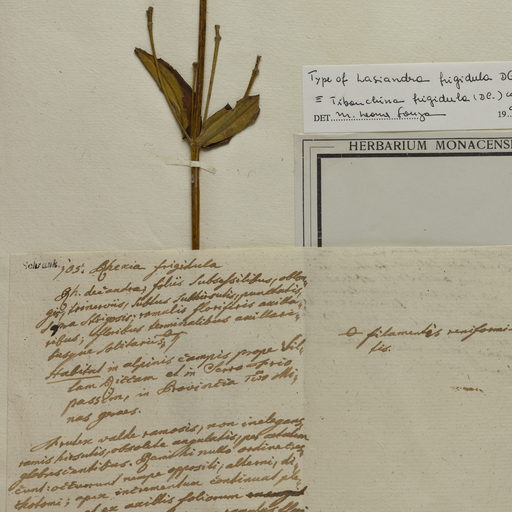 Type of Lasiandra frigidula DC
≡ Tibouchina frigidula (DC.)
DET. M. Leoni Souza 19..
HERBARIUM MONACENS
Schrank.
105. Rhexia frigidula
Rh. decandra, foliis subsessilibus, oblon
gis, trinerviis, subtus subhirsutis, punctatis,
supra strigosis: ramulis floriferis axilla
ribus; floribus terminalibus axillari
busque solitariis.
Habitat in alpinis campis prope Vil
lam Ricam et in Serro frio
passim, in Provintia Minas
geraes.
Frutex valde ramosis, non inelegans,
ramis hirsutis, obsolete angulatis, per aetatem
glabrescentibus. Ramuli nullo ordine
cunt: occurrunt nempe oppositi, alterni, di
chotomi; apex incrementum continuat
et ex axillis foliorum
O filamentis reniformi
tis.